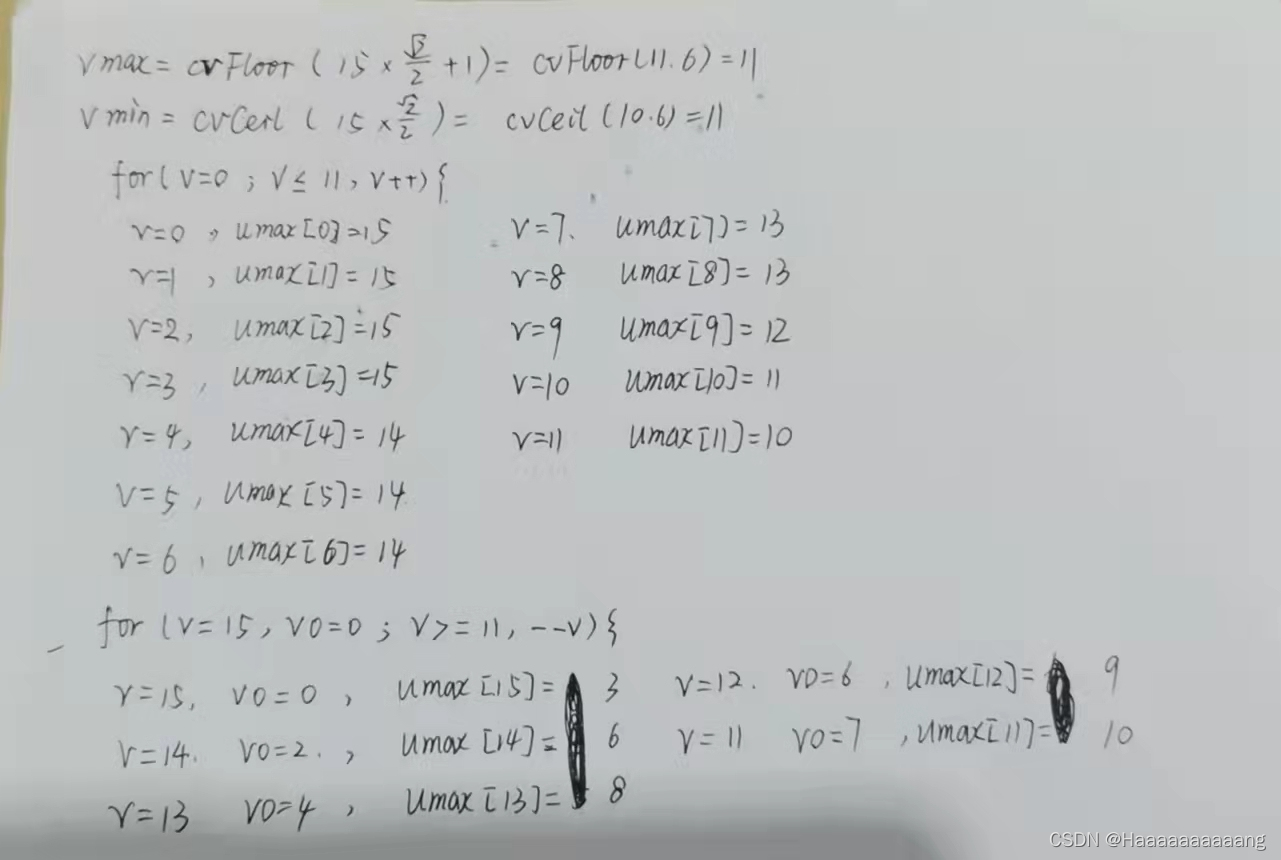 vmax = cvFloor ( 15 × √2/2 + 1) = cvFloor(11.6) = 11
vmin = cvCerl ( 15 × √2/2 ) = cvCeil (10.6) = 11
for( v=0 ; v ≤ 11, v++) {
v=0 , umax[0]=15 v=7. umax[7)= 13
v=1 , umax[1]= 15 v=8 umax[8]= 13
v=2, umax[2]=15 v=9 umax[9]= 12
v=3 , umax[3]=15 v=10 umax[10]= 11
v=4, umax[4]= 14 v=11 umax[11]=10
v=5 , umax[5]= 14
v=6 , umax[6]= 14
for (v=15, v0=0 ; v>=11, --v) {
v=15, v0=0 , umax[15]= 3 v=12. v0=6 , umax[12]= 9
v=14. v0=2. , umax[14]= 6 v=11 v0=7 , umax[11]= 10
v=13 v0=4 , umax[13]= 8
CSDN @Haaaaaaaaaang